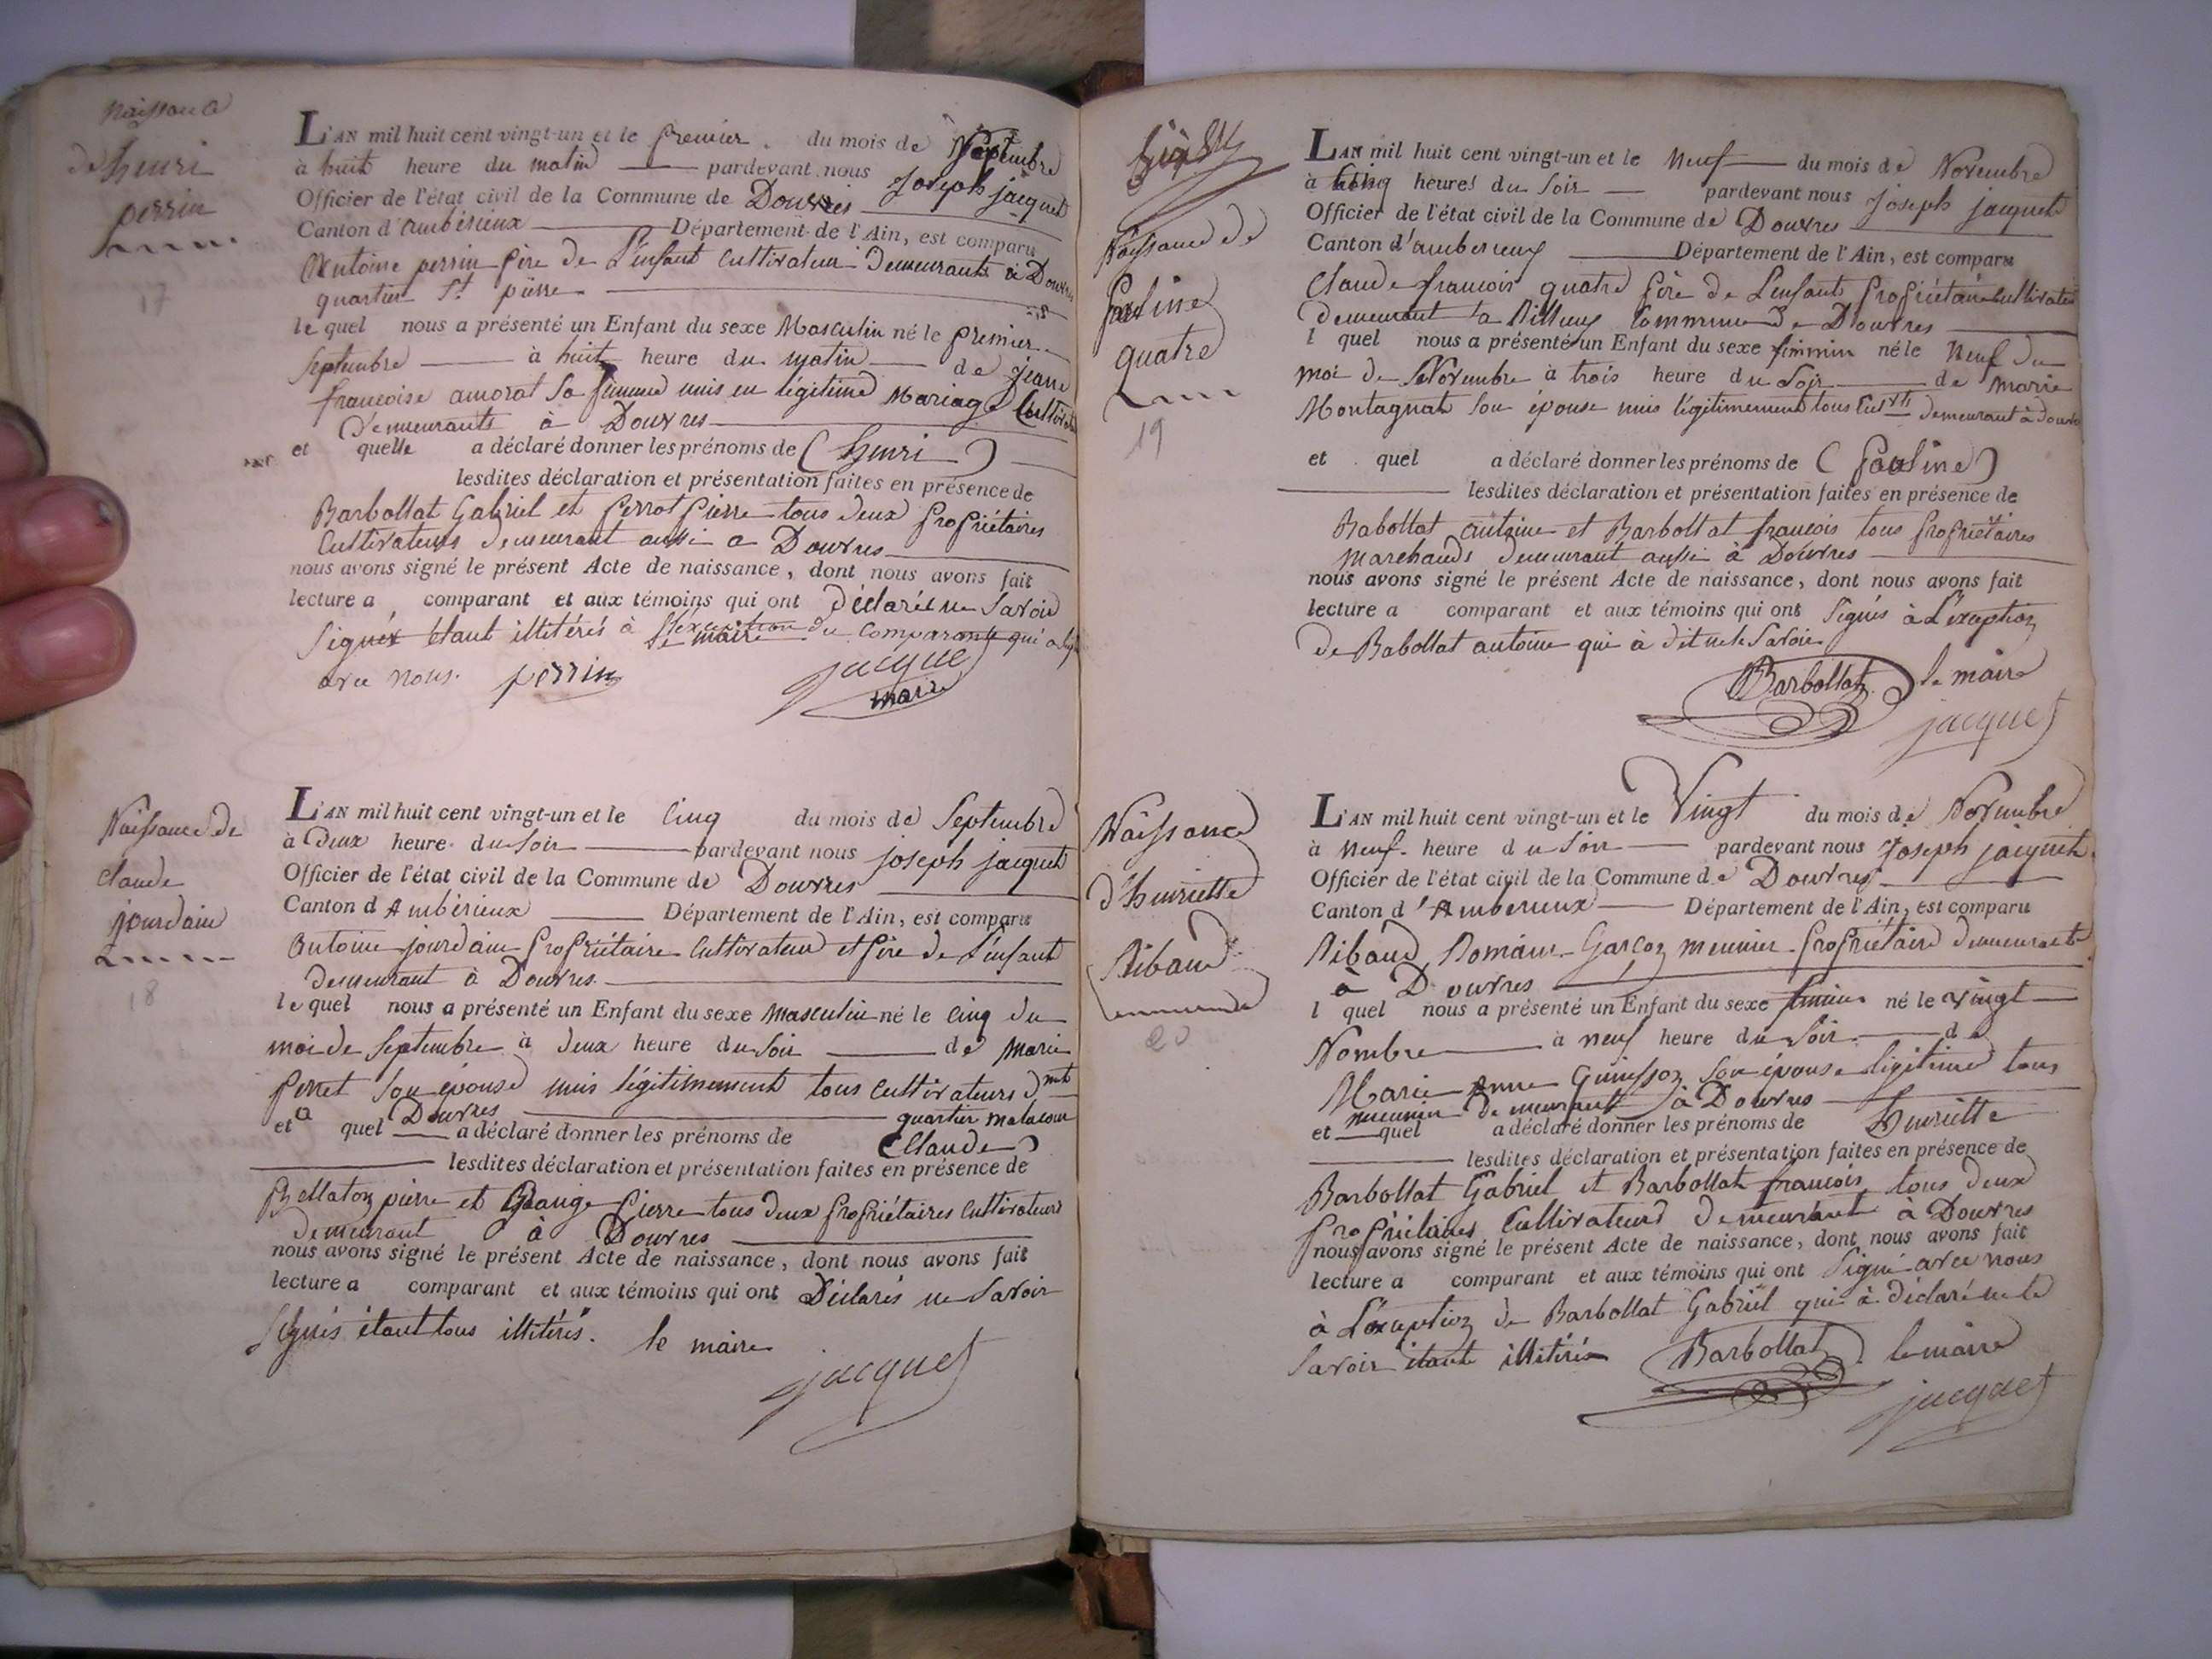 Naissance
de henri
perrin
17
L'AN mil huit cent vingt-un et le premier du mois de Septembre
à huit heure du matin pardevant nous Joseph jacquet
Officier de l'état civil de la Commune de Douvres
Canton d'ambérieux Département de l'Ain, est comparu
Antoine perrin père de L'enfant Cultivateur Demeurants à Douvres
quartier St pierre
le quel nous a présenté un Enfant du sexe Masculin né le premier
Septembre à huit heure du matin de Jeane
francoise amorat Sa femme unis en légitime Mariage
Demeurants à Douvres
et quelle a déclaré donner les prénoms de (henri)
lesdites déclaration et présentation faites en présence de
Barbollat Gabriel et perrot pierre tous deux propriétaires
Cultivateurs demeurant aussi a Douvres
nous avons signé le présent Acte de naissance, dont nous avons fait
lecture a comparant et aux témoins qui ont déclarés ne Savoir
Signés étant illitérés à l'éxception du Comparant qui a
avec nous. perrin le maire jacquet
maire
Naissance de
Claude
jourdain
18
L'AN mil huit cent vingt-un et le Cinq du mois de Septembre
à Deux heure du Soir pardevant nous joseph jacquet
Officier de l'état civil de la Commune de Douvres
Canton d'Ambérieux Département de l'Ain, est comparu
Antoine jourdain propriétaire Cultivateur et père de L'enfant
demeurant à Douvres
le quel nous a présenté un Enfant du sexe masculin né le Cinq du
moi de Septembre à deux heure du Soir de Marie
perret Son épouse unis légitimement tous Cultivateurs dmt
a Douvres quartier
et quel a déclaré donner les prénoms de (Claude)
lesdites déclaration et présentation faites en présence de
Bellaton pierre et Grange pierre tous deux propriétaires Cultivateurs
demeurant à Douvres
nous avons signé le présent Acte de naissance, dont nous avons fait
lecture a comparant et aux témoins qui ont Déclarés ne Savoir
Signés étant tous illitérés. le maire
jacquet
Naissance de
pauline
quatre
19
L'AN mil huit cent vingt-un et le Neuf du mois de Novembre
à Cinq heures du Soir pardevant nous joseph jacquet
Officier de l'état civil de la Commune de Douvres
Canton d'ambereux Département de l'Ain, est comparu
Claude francois quatre père de L'enfant propriétaire Cultivateur
demeurant a Commune de Douvres
l quel nous a présenté un Enfant du sexe féminin né le Neuf du
moi de Novembre à trois heure du Soir de Marie
Montagnat Son épouse unis légitimement tous demeurant à Douvres
et quel a déclaré donner les prénoms de (pauline)
lesdites déclaration et présentation faites en présence de
Babollat antoine et Barbollat francois tous propriétaires
marchands demeurant aussi à Douvres
nous avons signé le présent Acte de naissance, dont nous avons fait
lecture a comparant et aux témoins qui ont Signés à L'exception
de Babollat antoine qui à dit ne le Savoir
Barbollat le maire
jacquet
Naissance
d'henriette
Ribaud
20
L'AN mil huit cent vingt-un et le Vingt du mois de Novembre
à Neuf heure du Soir pardevant nous Joseph jacquet
Officier de l'état civil de la Commune de Douvres
Canton d'Ambereux Département de l'Ain, est comparu
Ribaud Romain Garçon meunier propriétaire demeurant
à Douvres
l quel nous a présenté un Enfant du sexe féminin né le vingt
Nombre à neuf heure du Soir de
Marie Anne Son épouse légitime tous
meunier demeurant à Douvres
et quel a déclaré donner les prénoms de henriette
lesdites déclaration et présentation faites en présence de
Barbollat Gabriel et Barbollat francois tous deux
propriétaires Cultivateurs demeurant à Douvres
nous avons signé le présent Acte de naissance, dont nous avons fait
lecture a comparant et aux témoins qui ont Signé avec nous
à L'exception de Barbollat Gabriel qui à déclaré ne le
Savoir étant illitérés Barbollat le maire
jacquet